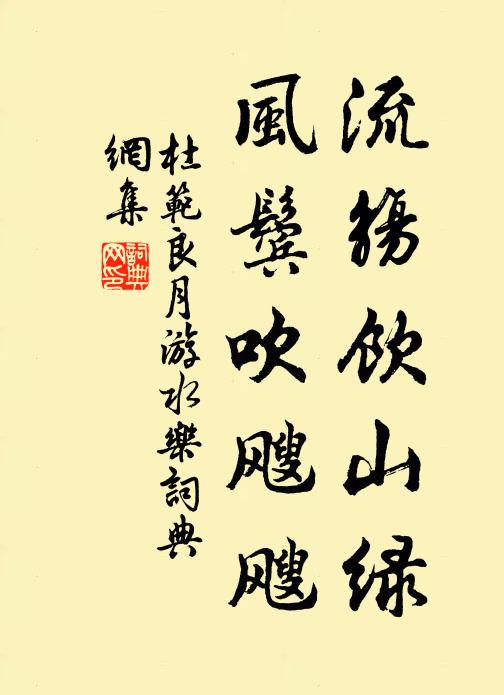 流觴飲山绿
風鬢吹颼颼
杜範良月游水樂詞典
網集
詞典网印